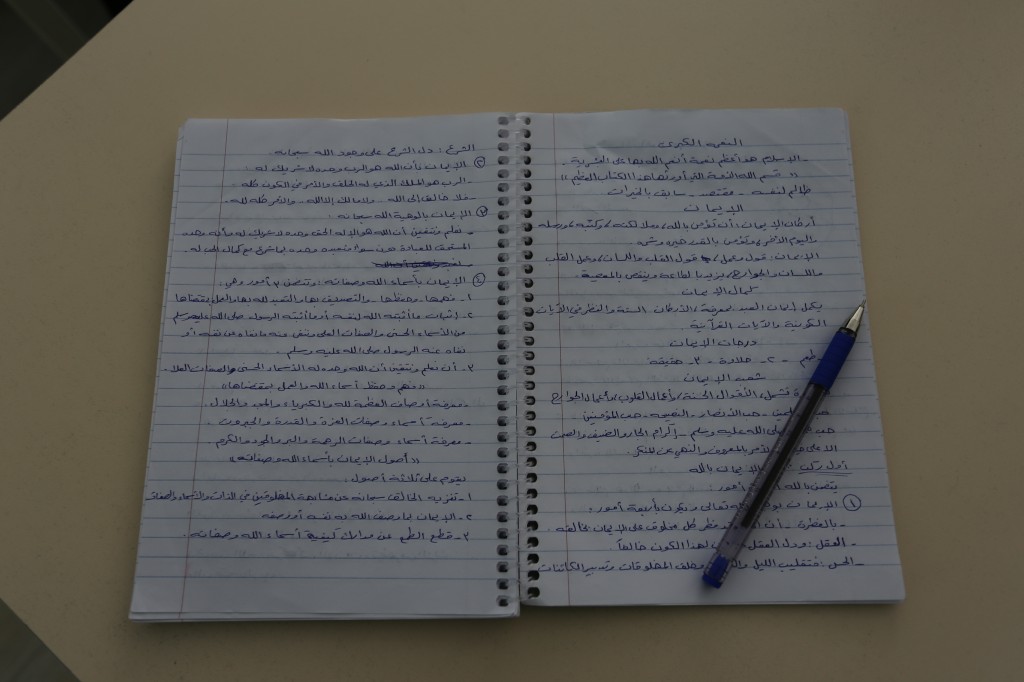 النعمه الكبرى
- الإسلام هو أعظم نعمة أنعم الله بها على البشرية .
ظالم لنفسه - مقتصد - سابق بالخيرات
الإيمان
أركان الإيمان : أن تؤمن بالله وملائكته وكتبه ورسله
واليوم الآخر وتؤمن بالقدر خيره وشره
الإيمان : قول وعمل ، قول القلب واللسان وعمل القلب
واللسان والجوارح يزيد بالطاعة وينقص بالمعصية .
كمال الإيمان
يكمل إيمان العبد بمعرفة الأركان الستة والنظر في الآيات
الكونية والآيات القرآنية .
درجات الإيمان
طعم - ٢- حلاوة - ٣- حقيقه
شعب الإيمان
تشمل الأقوال الحسنة وأعمال القلوب وأعمال الجوارح
حب الأنصار - النصيحه - حب المؤمنين
صلى الله عليه وسلم - إكرام الجار والضيف والصمت
الأمر بالمعروف والنهي عن المنكر
أول ركن الإيمان بالله
أمور :
① الإيمان تعالى ويكون بأربعة أمور :
- بالفطرة - فطر كل مخلوق على الإيمان بخالقه .
- العقل : ودل العقل لهذا الكون خالقاً .
- الحس : فتقليب الليل وخلق المخلوقات وتدبير الكائنات
الشرع : دل الشرع على وجود الله سبحانه
② الإيمان بأن الله هو الرب وحده لا شريك له :
- الرب هو الملك الذي له الخلق والأمر في الكون كله
- فلا خالق إلا الله - ولا مالك إلا الله - والأمر كله لله
③ الإيمان بألوهية الله سبحانه :
- نعلم ونتيقن أن الله هو الإله الحق وحده لا شريك له وأنه وحده
المستحق للعبادة دون سواه فنعبده وحده بما شرع مع كمال الحب له .
④ الإيمان بأسماء الله وصفاته : وتتضمن ٣ أمور وهي :
١- فهمها وحفظها والتعبد لله بها والعمل بمقتضاها
٢- إثبات ما أثبته الله لنفسه أو ما أثبته الرسول صلى الله عليه وسلم
من الأسماء الحسنى والصفات العلى ونفي ما نفاه عن نفسه أو
نفاه عنه الرسول صلى الله عليه وسلم .
٣- أن نعلم ونتيقن أن الله وحده له الأسماء الحسنى والصفات العلا .
« فهم وحفظ أسماء الله والعمل بمقتضاها »
- معرفة أوصاف العظمة لله والكبرياء والمجد والجلال .
- معرفة أسماء وصفات العزة والقدرة والجبروت .
- معرفة أسماء وصفات الرحمة والبر والجود والكرم .
« أصول الإيمان بأسماء الله وصفاته »
يقوم على ثلاثة أصول :
١- تنزيه الخالق سبحانه عن مشابهة المخلوقين في الذات والأسماء والصفات
٢- الإيمان بما وصف الله به نفسه أو وصفه
٣- قطع الطمع عن إدراك كيفية أسماء الله وصفاته .